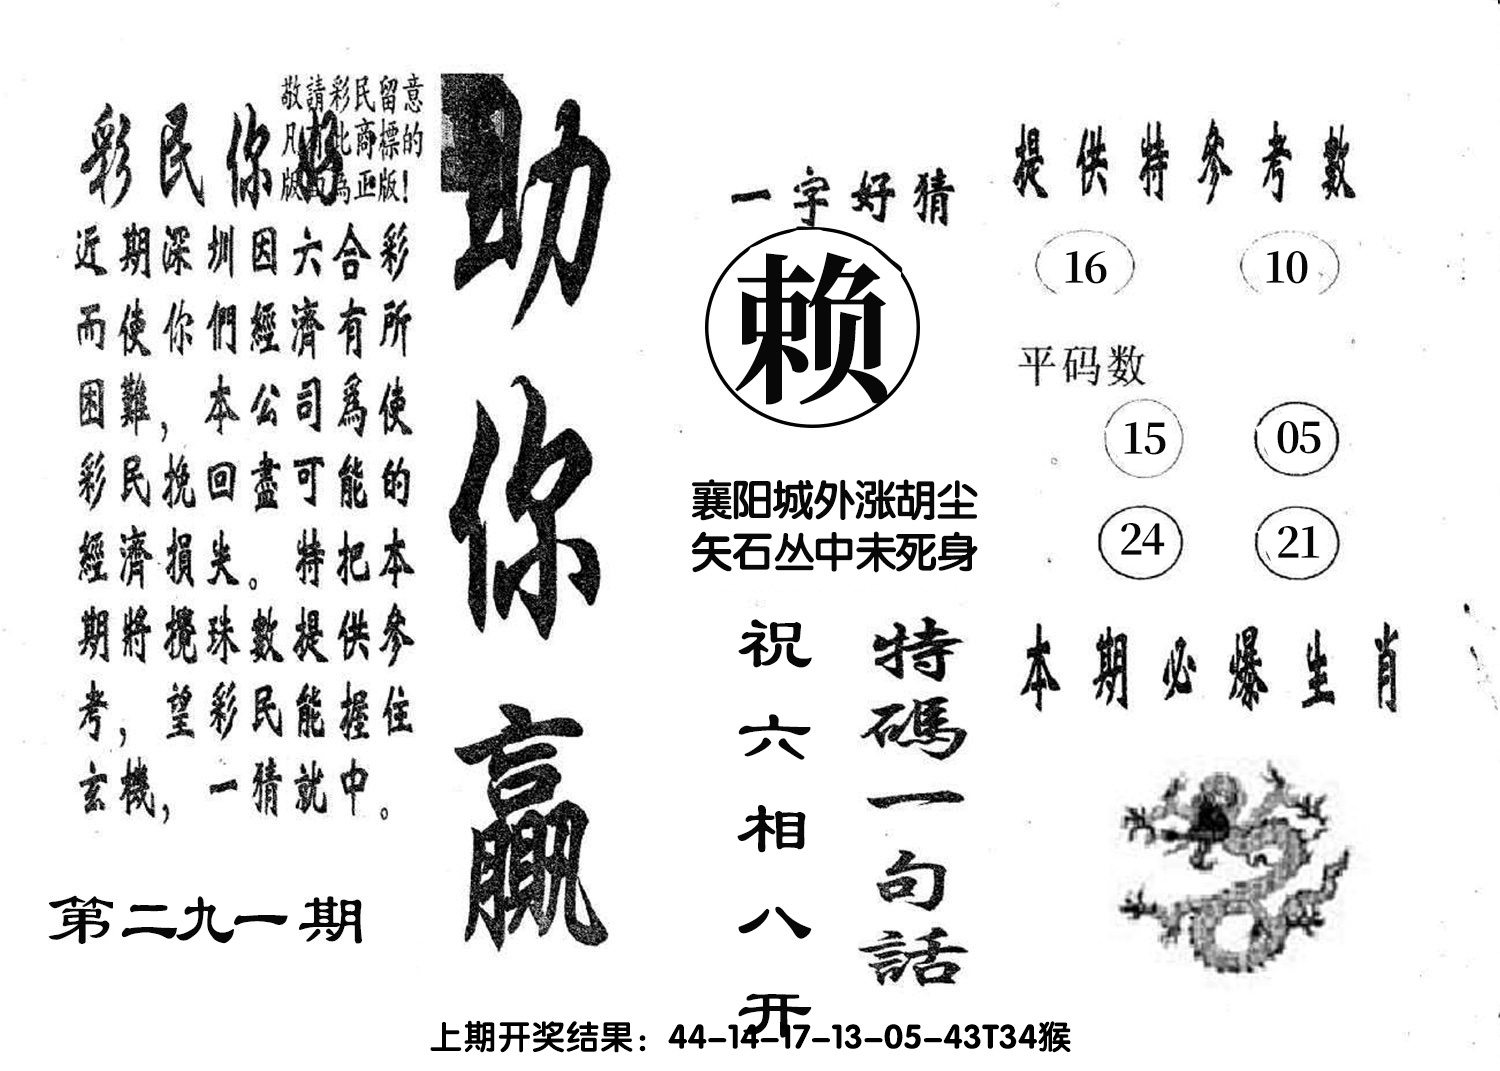 敬請彩民留意
凡有此商標的
版面為正版!
彩民你好
近期深圳因六合彩
而使你們經濟有所
困難，本公司爲使
彩民挽回盡可能的
經濟損失。特把本
期將攪珠數提供參
考，望彩民能握住
玄機，一猜就中。
第二九一期
助你贏
一字好猜
赖
襄阳城外涨胡尘
矢石丛中未死身
特碼一句話
祝六相八开
提供特參考數
16 10
平码数
15 05
24 21
本期必爆生肖
上期开奖结果：44-14-17-13-05-43T34猴